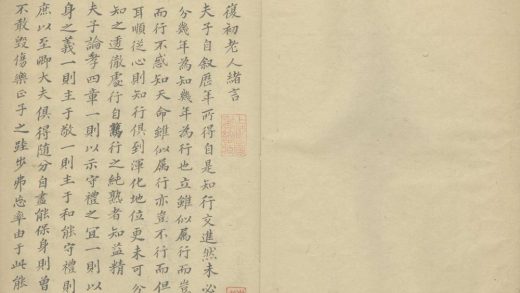 復初老人緒言
夫子自叙歷年所得自是知行交進然未必
分幾年為知幾年為行也立雖似属行而豈
而行不惑知天命雖似属行亦豈不行而但
耳順從心則知行俱到渾化地位更未可分
知之透徹處行自篤行之純熟者知益精
夫子論孝四章一則以示守禮之宜一則以
身之義一則主于敬一則主于和能守禮則
庶以至卿大夫俱得隨分自盡能保身則曾
不敢毀傷樂正子之跬步弗忘率由于此能